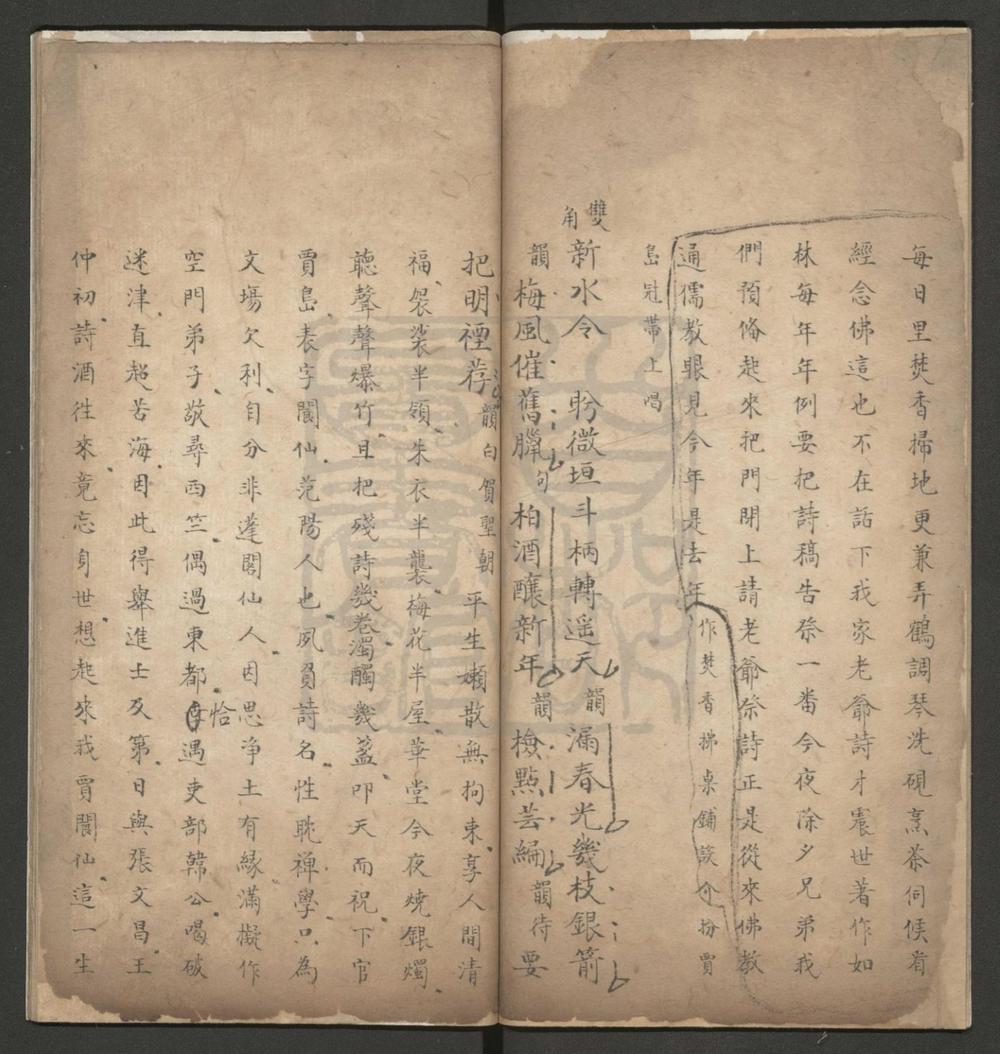 每日里焚香掃地更兼弄鶴調琴洗硯烹茶伺候看
經念佛這也不在話下我家老爺詩才震世著作如
林每年年例要把詩稿告祭一番今夜除夕兄弟我
們預俻起來把門閉上請老爺祭詩正是從來佛教
通儒教眼見今年是去年作焚香拂桌鋪設介扮賈
島冠帶上唱
雙角新水令 盼微垣斗柄轉遥天韻漏春光幾枝銀箭
韻梅風催舊臘句柏酒釀新年韻檢點芸編韻待要
把明禋荐韻白賀聖朝平生嬾散無拘束享人間清
福袈裟半領朱衣半襲梅花半屋華堂今夜燒銀燭
聽聲聲爆竹且把殘詩幾卷濁醑幾盞叩天而祝下官
賈島表字閬仙范陽人也夙負詩名性耽禅學只為
文塲欠利自分非蓬閬仙人因思浄土有縁滿擬作
空門弟子敬尋西竺偶過東都恰遇吏部韓公喝破
迷津直超苦海因此得舉進士及第日與張文昌王
仲初詩酒徃來竟忘身世想起來我賈閬仙這一生